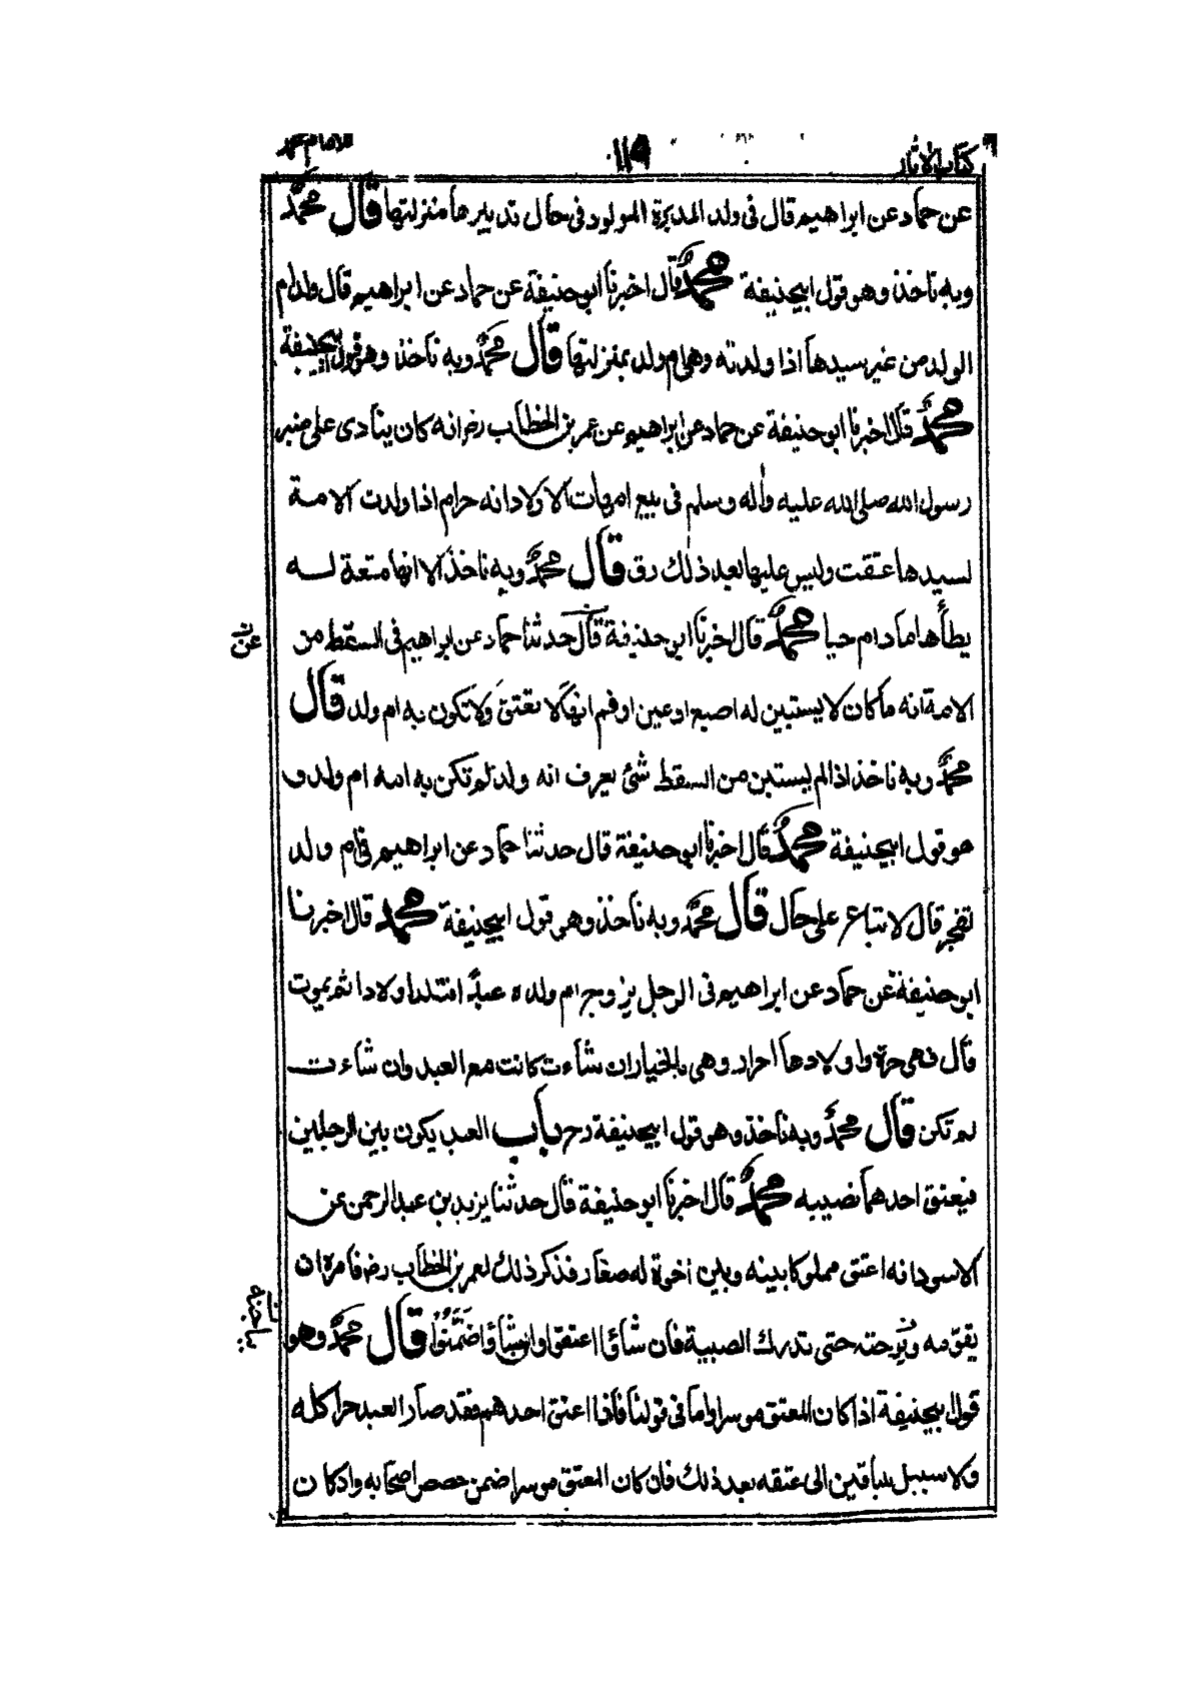 كتاب الاثار ١١٩ للامام محمد
عن حماد عن ابراهيم قال فى ولد المدبرة المولود فى حال تدبيرها منزلتها قال محمد
وبه ناخذ وهو قول ابيحنيفة محمد قال اخبرنا ابو حنيفة عن حماد عن ابراهيم قال ولد ام
الولد من غير سيدها اذا ولدته وهى ام ولد بمنزلتها قال محمد وبه ناخذ وهو قول ابيحنيفة
محمد قال اخبرنا ابو حنيفة عن حماد عن ابراهيم عن عمر بن الخطاب رض انه كان ينادى على منبر
رسول الله صلى الله عليه واله وسلم فى بيع امهات الاولاد انه حرام اذا ولدت الامة
لسيدها عتقت وليس عليها بعد ذلك رق قال محمد وبه ناخذ الا انها متعة له
يطأها ما دام حيا محمد قال اخبرنا ابو حنيفة قال حدثنا حماد عن ابراهيم فى السقط من
الامة انه ما كان لا يستبين له اصبع او عين او فم انها لا تعتق ولا تكون به ام ولد قال
محمد وبه ناخذ اذا لم يستبن من السقط شئ يعرف انه ولد لم تكن به امه ام ولد و
هو قول ابيحنيفة محمد قال اخبرنا ابو حنيفة قال حدثنا حماد عن ابراهيم فى ام ولد
تفجر قال لا تباع على حال قال محمد وبه ناخذ وهو قول ابيحنيفة محمد قال اخبرنا
ابو حنيفة عن حماد عن ابراهيم فى الرجل يزوج ام ولده عبدا فتلد اولادا ثم يموت
قال فهى حرة واولادها احرار وهى بالخيار ان شاءت كانت مع العبد وان شاءت
لم تكن قال محمد وبه ناخذ وهو قول ابيحنيفة رح باب العبد يكون بين الرجلين
فيعتق احدهما نصيبه محمد قال اخبرنا ابو حنيفة قال حدثنا يزيد بن عبد الرحمن عن
الاسود انه اعتق مملوكا بينه وبين اخوة له صغار فذكر ذلك لعمر بن الخطاب رض فامره ان
يقومه ويرجئه حتى تدرك الصبية فان شاؤا اعتقوا وان شاؤا ضمنوا قال محمد وهو
قول ابيحنيفة اذا كان المعتق موسرا واما فى قولنا فاذا اعتق احدهم فقد صار العبد حرا كله
ولا سبيل للباقين الى عتقه بعد ذلك فان كان المعتق موسرا ضمن حصص اصحابه وان كان